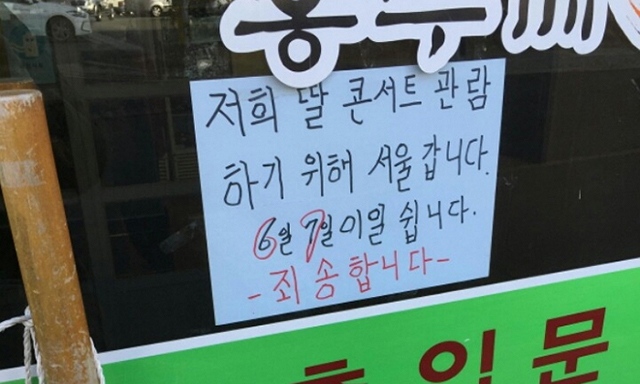 저희 딸 콘서트 관람
하기 위해 서울 갑니다.
6일 7일 이일 쉽니다.
-죄송합니다-
출입문